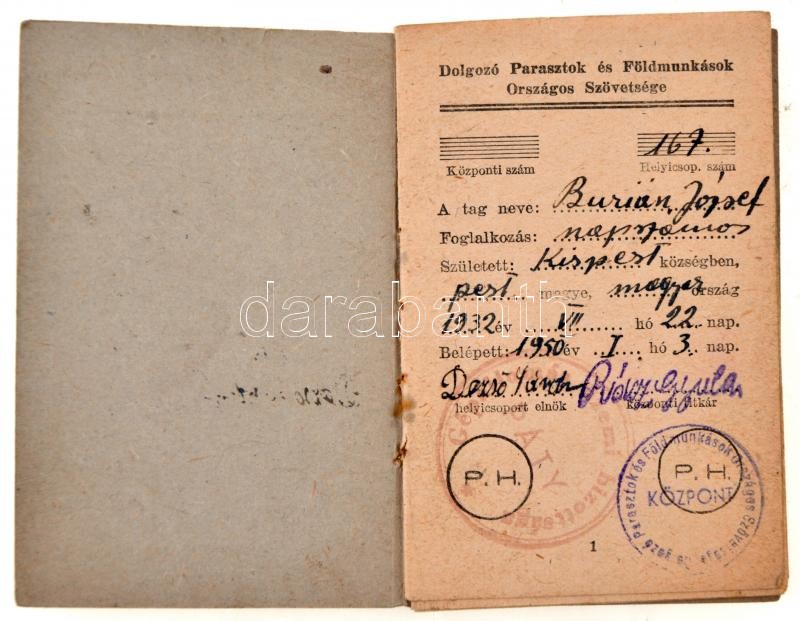 Dolgozó Parasztok és Földmunkások
Országos Szövetsége
167.
Központi szám Helyicsop. szám
A tag neve: Burián József
Foglalkozás: napszámos
Született: Kispest községben,
pest megye, magyar ország
1932 év VII hó 22 nap.
Belépett: 1950 év I hó 3 nap.
Dezső
helyicsoport elnök központi titkár
P.H. P.H.
Parasztok és Földmunkások Országos Szövetsége
KÖZPONT
1
darabanth.com